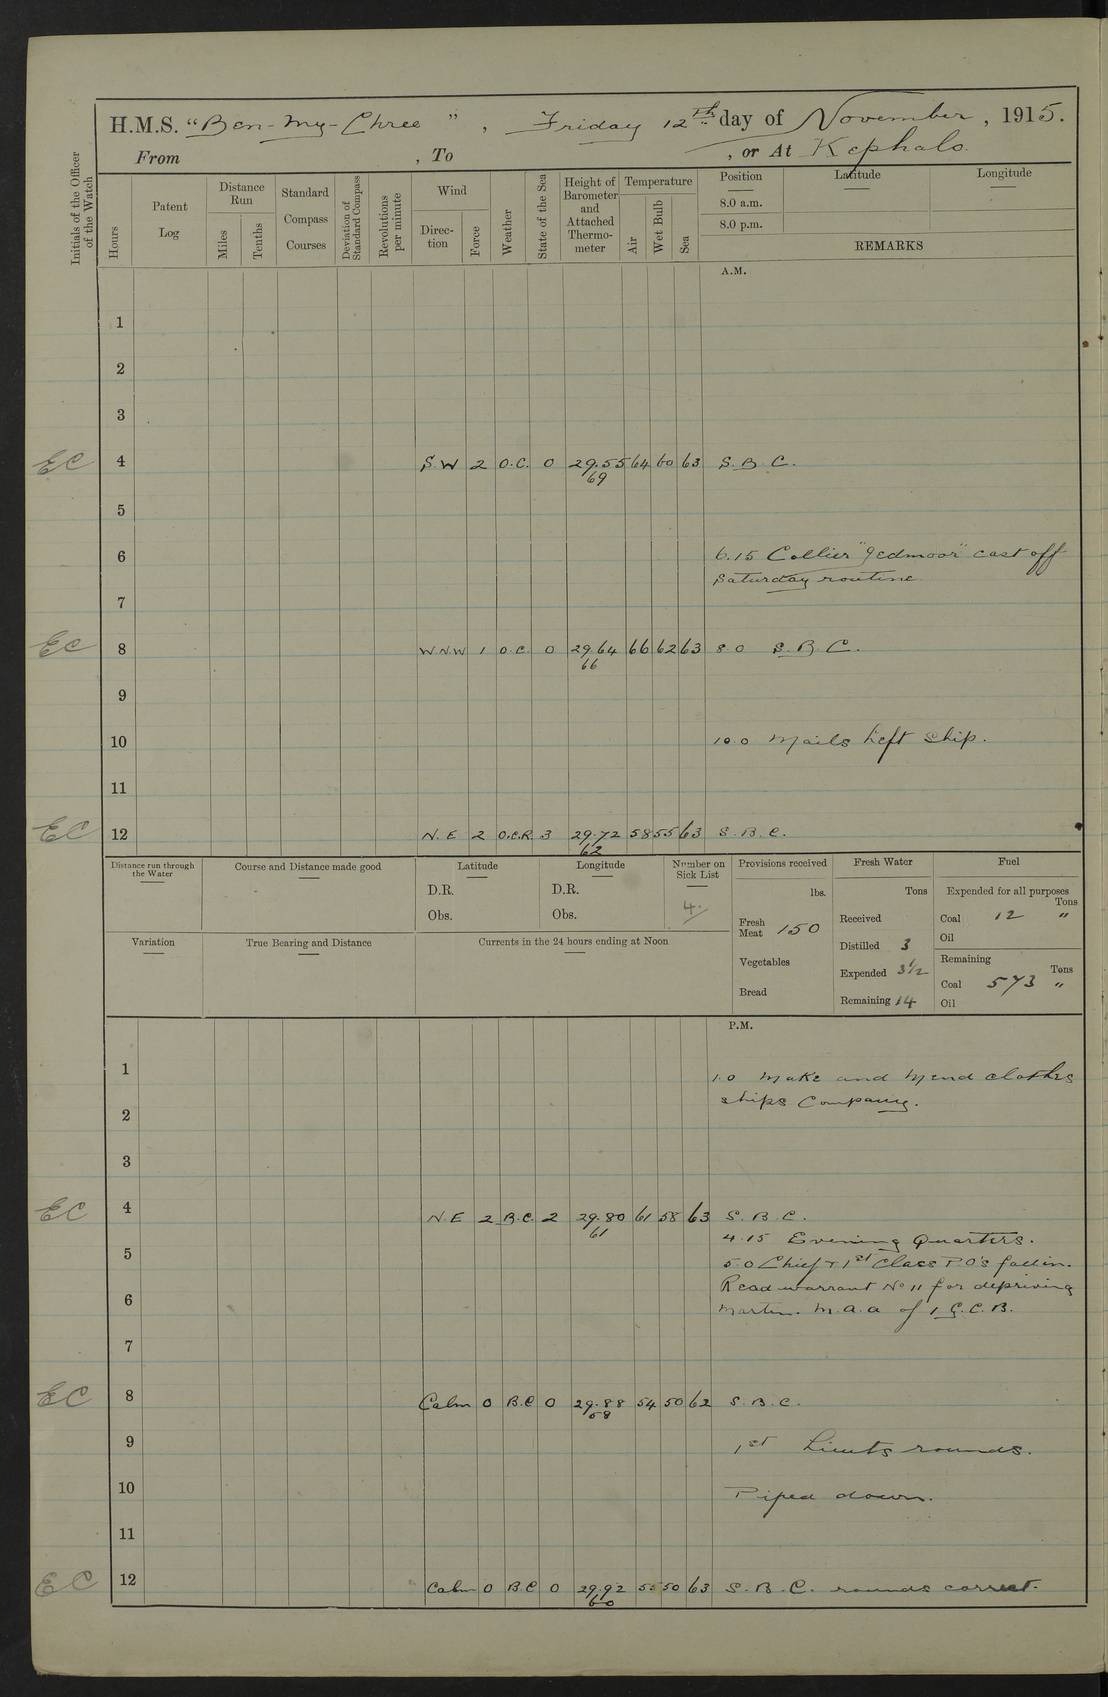 H.M.S. "Ben-my-Chree", Friday 12th day of November, 1915.
From , To , or At Kephalo.
Initials of the Officer of the Watch
Hours
Patent Log
Distance Run
Miles
Tenths
Standard Compass Courses
Deviation of Standard Compass
Revolutions per minute
Wind
Direction
Force
Weather
State of the Sea
Height of Barometer and Attached Thermometer
Temperature
Air
Wet Bulb
Sea
Position Latitude Longitude
8.0 a.m.
8.0 p.m.
REMARKS
A.M.
1
2
3
EC 4 S.W 2 O.C. 0 29.55 64 60 63 S.B.C.
69
5
6 6.15 Collier "Jedmoor" cast off
Saturday routine
7
EC 8 W.N.W 1 O.C. 0 29.64 66 62 63 8.0 S.B.C.
66
9
10 10.0 Mails left ship.
11
EC 12 N.E 2 O.C.R. 3 29.72 58 55 63 S.B.C.
62
Distance run through the Water
Course and Distance made good
Latitude
D.R.
Obs.
Longitude
D.R.
Obs.
Number on Sick List
4.
Provisions received
lbs.
Fresh Meat 150
Vegetables
Bread
Fresh Water
Tons
Received
Distilled 3
Expended 3½
Remaining 14
Fuel
Expended for all purposes
Tons
Coal 12 "
Oil
Remaining
Tons
Coal 573 "
Oil
Variation
True Bearing and Distance
Currents in the 24 hours ending at Noon
P.M.
1 1.0 Make and Mend clothes
ships Company.
2
3
EC 4 N.E 2 B.C. 2 29.80 61 58 63 S.B.C.
61
4.15 Evening Quarters.
5 5.0 Chief & 1st Class P.O's fall in.
Read warrant No 11 for depriving
6 Martin. M.a.a of 1 G.C.B.
7
EC 8 Calm 0 B.C 0 29.88 54 50 62 S.B.C.
58
9 1st Lieuts rounds.
10 Piped down.
11
EC 12 Calm 0 B.C 0 29.92 55 50 63 S.B.C. rounds correct.
60